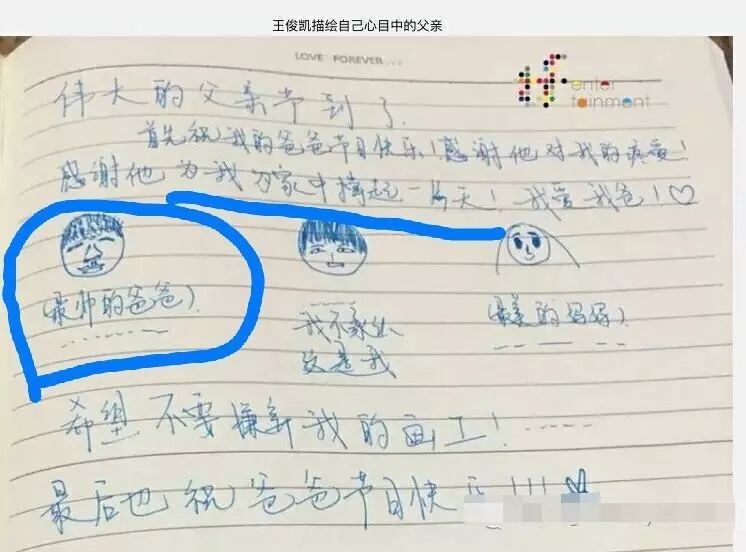 王俊凯描绘自己心目中的父亲
LOVE FOREVER...
enter
tainment
伟大的父亲节到了
首先祝我的爸爸节日快乐!感谢他对我的疼爱!
感谢他为我为家中撑起一片天!我爱我爸!♡
(最帅的爸爸)
我不承认
这是我
(最美的妈妈)
希望不要嫌弃我的画工!
最后也祝爸爸节日快乐!!!